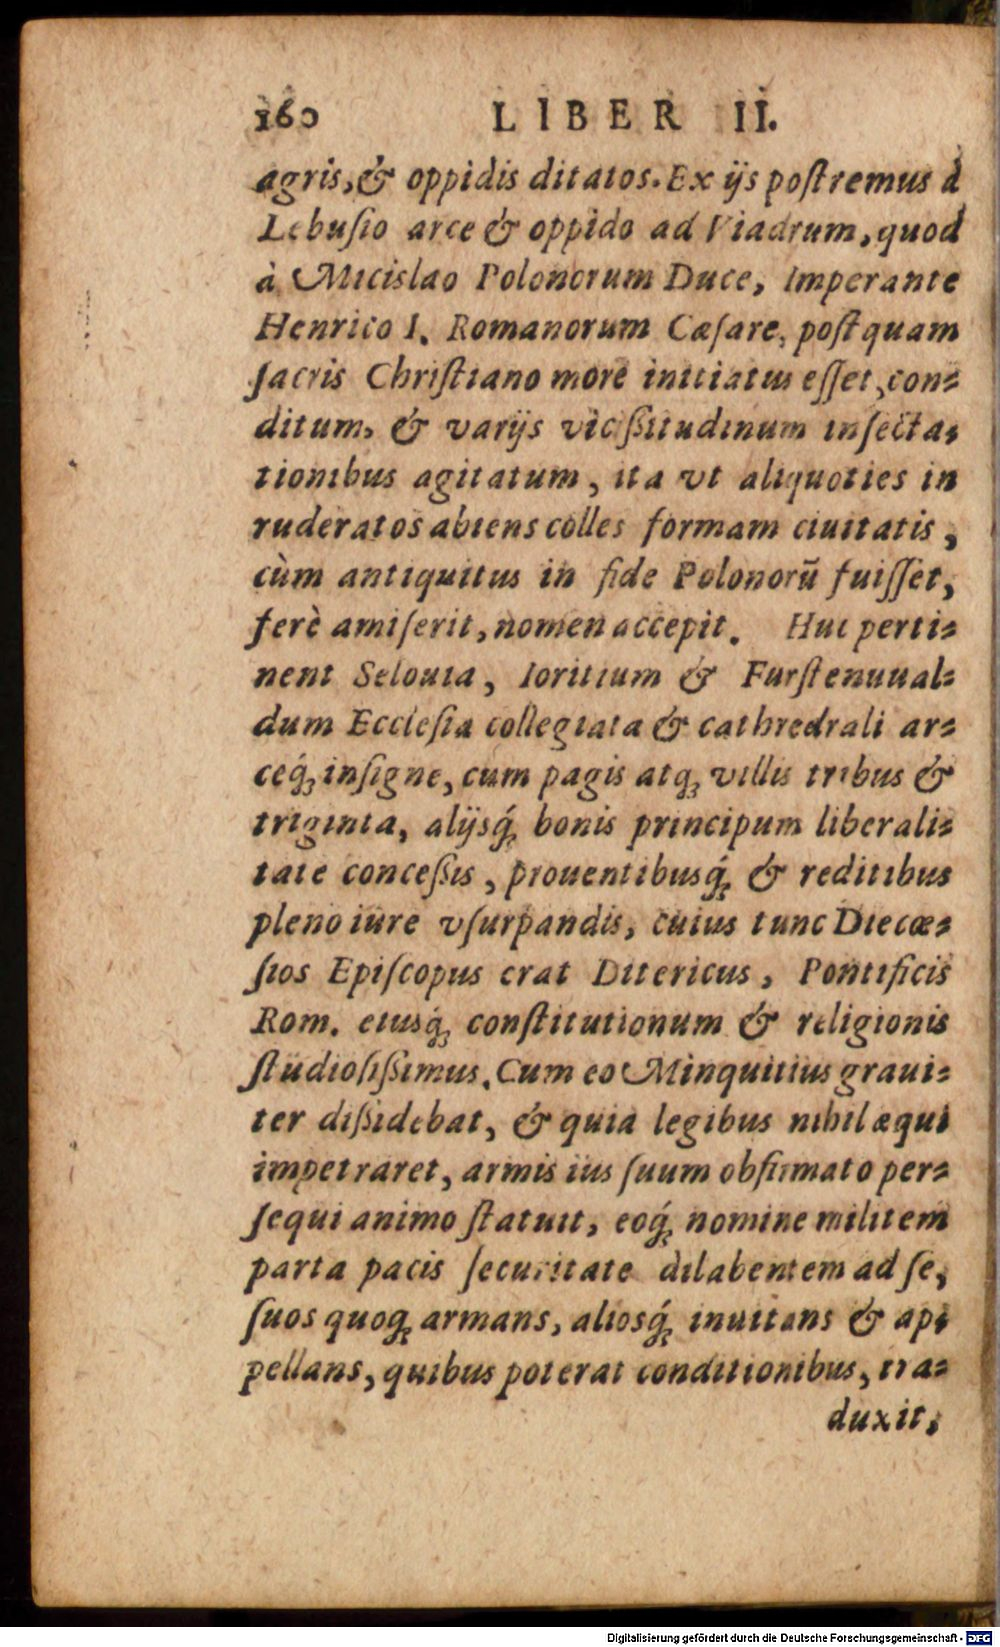 160 LIBER II.
agris, & oppidis ditatos. Ex ijs poſtremus à
Lebuſio arce & oppido ad Viadrum, quod
à Micislao Polonorum Duce, Imperante
Henrico I. Romanorum Cæſare, poſtquam
ſacris Chriſtiano more initiatus eſſet, con⸗
ditum, & varijs viciſsitudinum inſecta⸗
tionibus agitatum, ita vt aliquoties in
ruderatos abiens colles formam ciuitatis,
cùm antiquitus in fide Polonorũ fuiſſet,
ferè amiſerit, nomen accepit. Huc perti⸗
nent Selouia, Ioritium & Furſtenuual⸗
dum Eccleſia collegiata & cathredrali ar⸗
ceq́ꝫ inſigne, cum pagis atqꝫ villis tribus &
triginta, alijsq́ꝫ bonis principum liberali⸗
tate conceſsis, prouentibusq́ꝫ & reditibus
pleno iure vſurpandis, cuius tunc Diecœ⸗
ſios Epiſcopus erat Ditericus, Pontificis
Rom. eiusq́ꝫ conſtitutionum & religionis
ſtudioſiſsimus. Cum eo Minquitius graui⸗
ter diſsidebat, & quia legibus nihil æqui
impetraret, armis ius ſuum obfirmato per⸗
ſequi animo ſtatuit, eoq́ꝫ nomine militem
parta pacis ſecuritate dilabentem ad ſe,
ſuos quoqꝫ armans, aliosq́ꝫ inuitans & ap⸗
pellans, quibus poterat conditionibus, tra⸗
duxit,
Digitalisierung gefördert durch die Deutsche Forschungsgemeinschaft - DFG